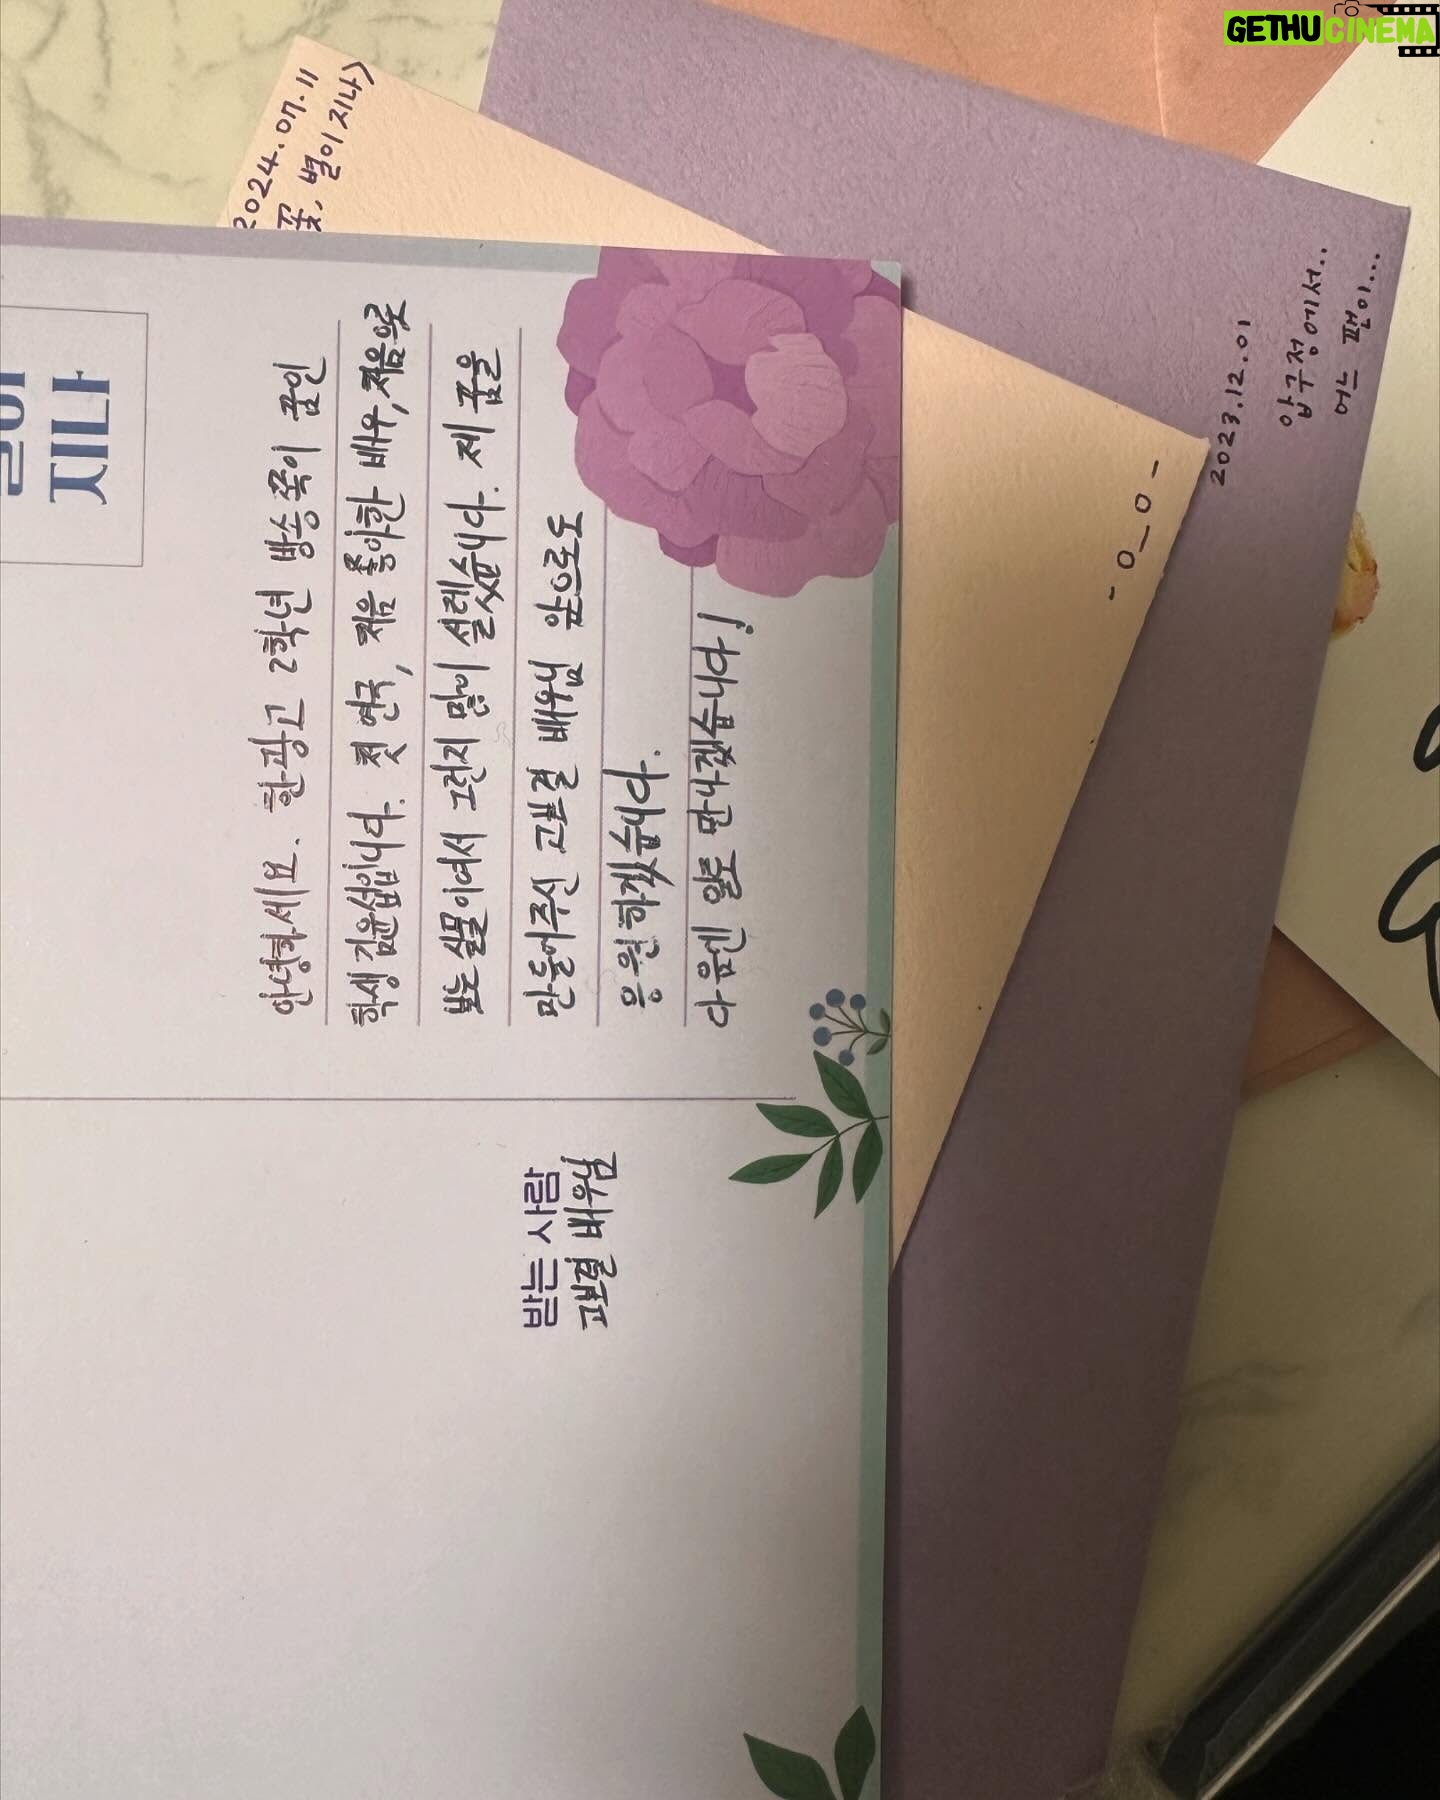 GETHUCINEMA
2024.07.11
꽃, 별이 지나>
2023.12.01
압구정에서..
어느 팬이...
- o _ o -
지나
안녕하세요. 한광고 2학년 방송쪽이 꿈인
학생 김윤섭입니다. 첫 연극, 처음 좋아한 배우, 처음으로
보는 실물이여서 그런지 많이 설레였습니다. 제 꿈을
만들어주신 고보결 배우님 앞으로도
응원하겠습니다.
다음엔 일로 만나겠습니다!
받는 사람
고보결 배우님